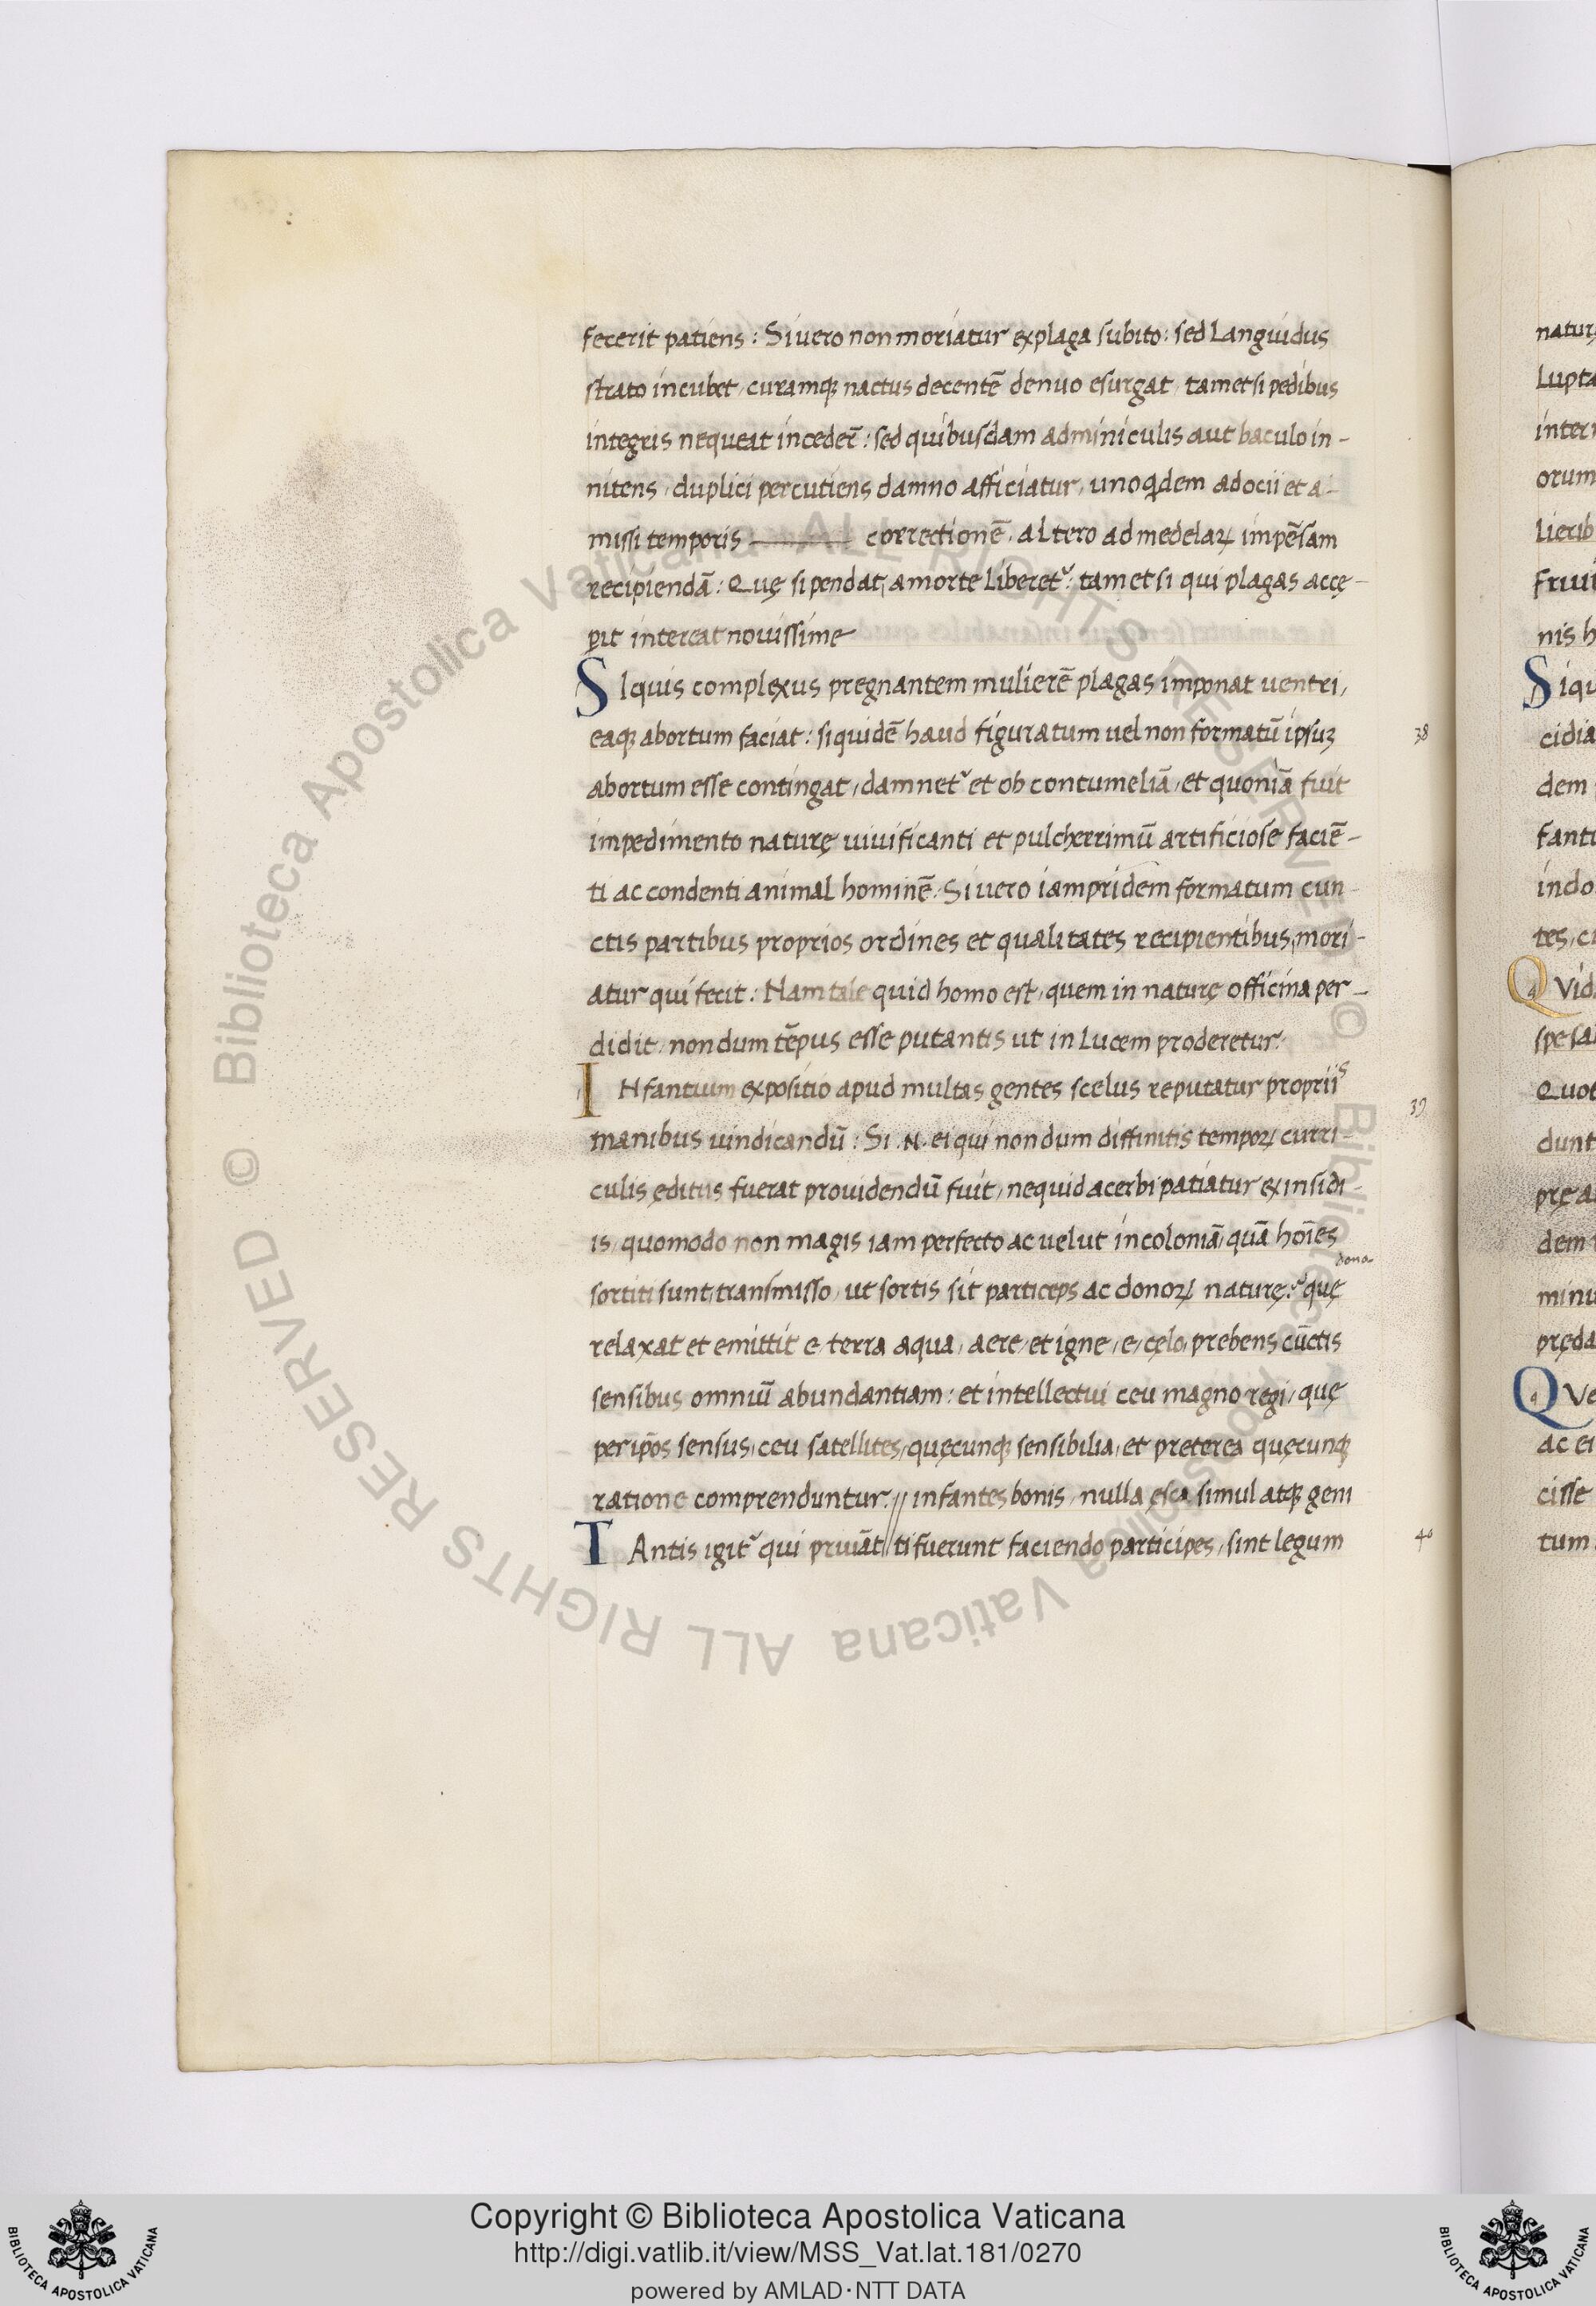 fecerit patiens : Si uero non moriatur ex plaga subito : sed Languidus
strato incubet, curamq; nactus decentē denuo esurgat, tametsi pedibus
integris nequeat incederē : sed quibusdam adminiculis aut baculo in-
nitens, duplici percutiens damno afficiatur, uno qdem ad ocii et a-
missi temporis correctionē, altero ad medelaꝝ impēsam
recipiendā : Quę si pendat, a morte Liberet᷑ : tametsi qui plagas accę-
pit intereat nouissime
SI quis complexus pregnantem mulierē plagas imponat uentri,
eaq; abortum faciat : siquidē haud figuratum uel non formatū ipsuꝫ 38
abortum esse contingat, damnet᷑ et ob contumeliā, et quoniā fuit
impedimento naturę uiuificanti et pulcherrimū artificiose faciē-
ti ac condenti animal hominē. Si uero iampridem formatum cun-
ctis partibus proprios ordines et qualitates recipientibus, mori-
atur qui fecit : Nam tale quid homo est, quem in naturę officina per-
didit, nondum tēpus esse putantis ut in Lucem proderetur.
INfantium expositio apud multas gentes scelus reputatur propriis 39
manibus uindicandū : Si .N. ei qui nondum diffinitis tempoꝝ curri-
culis ęditus fuerat prouidendū fuit, nequid acerbi patiatur ex insidi-
is, quomodo non magis iam perfecto ac uelut in coloniā, quā hoīes
dona
sortiti sunt, transmisso, ut sortis sit particeps ac donoꝝ naturę : quę
relaxat et emittit e, terra aqua, aere, et igne, e, cęlo, prebens cūctis
sensibus omniū abundantiam : et intellectui ceu magno regi, quę
per ipōs sensus, ceu satellites, quęcunq; sensibilia, et preterea quęcunq;
ratione comprenduntur. // infantes bonis, nulla ęsca simul atq; geni
TAntis igit᷑ qui priuāt // ti fuerunt faciendo participes, sint legum 40
natur
Lupta
inter
orum
Lierib
frui
nis h
Siqu
cidia
dem
fant
indo
tes, c
QVid
spe sa
Quot
dunt
pręa
dem
minu
pręda
QVe
ac ei
cisse
tum
Copyright © Biblioteca Apostolica Vaticana
http://digi.vatlib.it/view/MSS_Vat.lat.181/0270
powered by AMLAD·NTT DATA
BIBLIOTECA APOSTOLICA VATICANA
BIBLIOTECA APOSTOLICA VATICANA
© Biblioteca Apostolica Vaticana ALL RIGHTS RESERVED
© Biblioteca Apostolica Vaticana ALL RIGHTS RESERVED